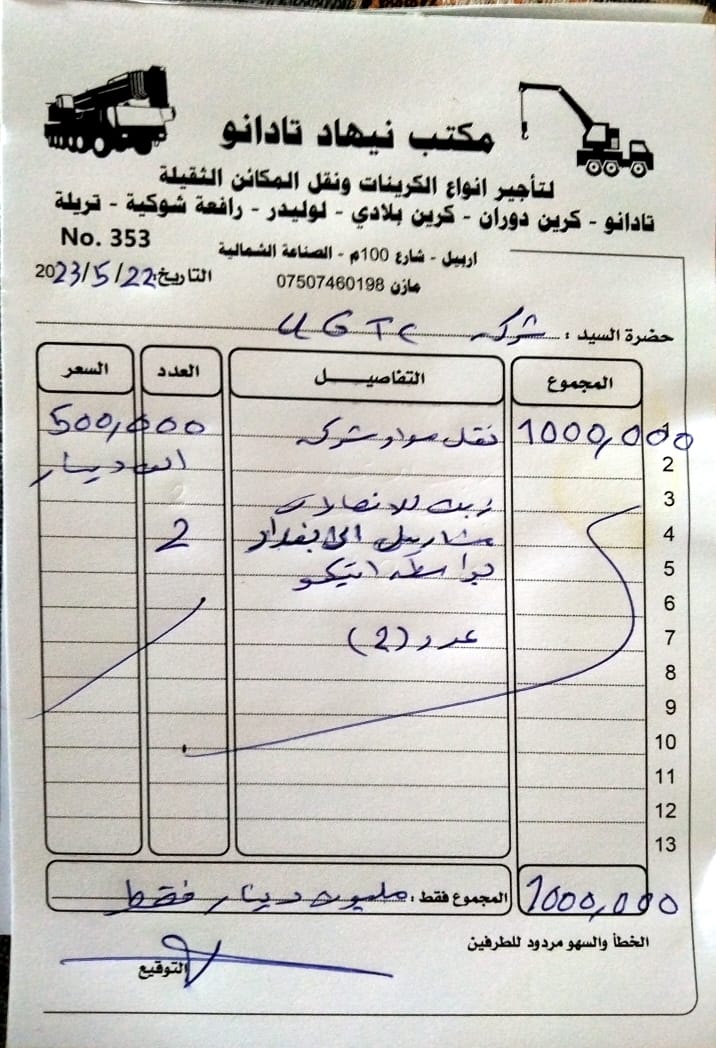 مكتب نيهاد تادانو
لتأجير انواع الكرينات ونقل المكائن الثقيلة
تادانو - كرين دوران - كرين بلادي - لوليدر - رافعة شوكية - تريلة
اربيل - شارع 100م - الصناعة الشمالية
No. 353
مازن 07507460198
التاريخ: 2023/5/22
حضرة السيد : شركة UGTC
المجموع التفاصيــــل العدد السعر
1 1000,000 نقل مواد شركة 500,000
2 الف دينار
3 للاتصالات
4 من اربيل الى بغداد 2
5 بواسطة
6
7 عدد (2)
8
9
10
11
12
13
1000,000 المجموع فقط : مليون دينار فقط
الخطأ والسهو مردود للطرفين
التوقيع